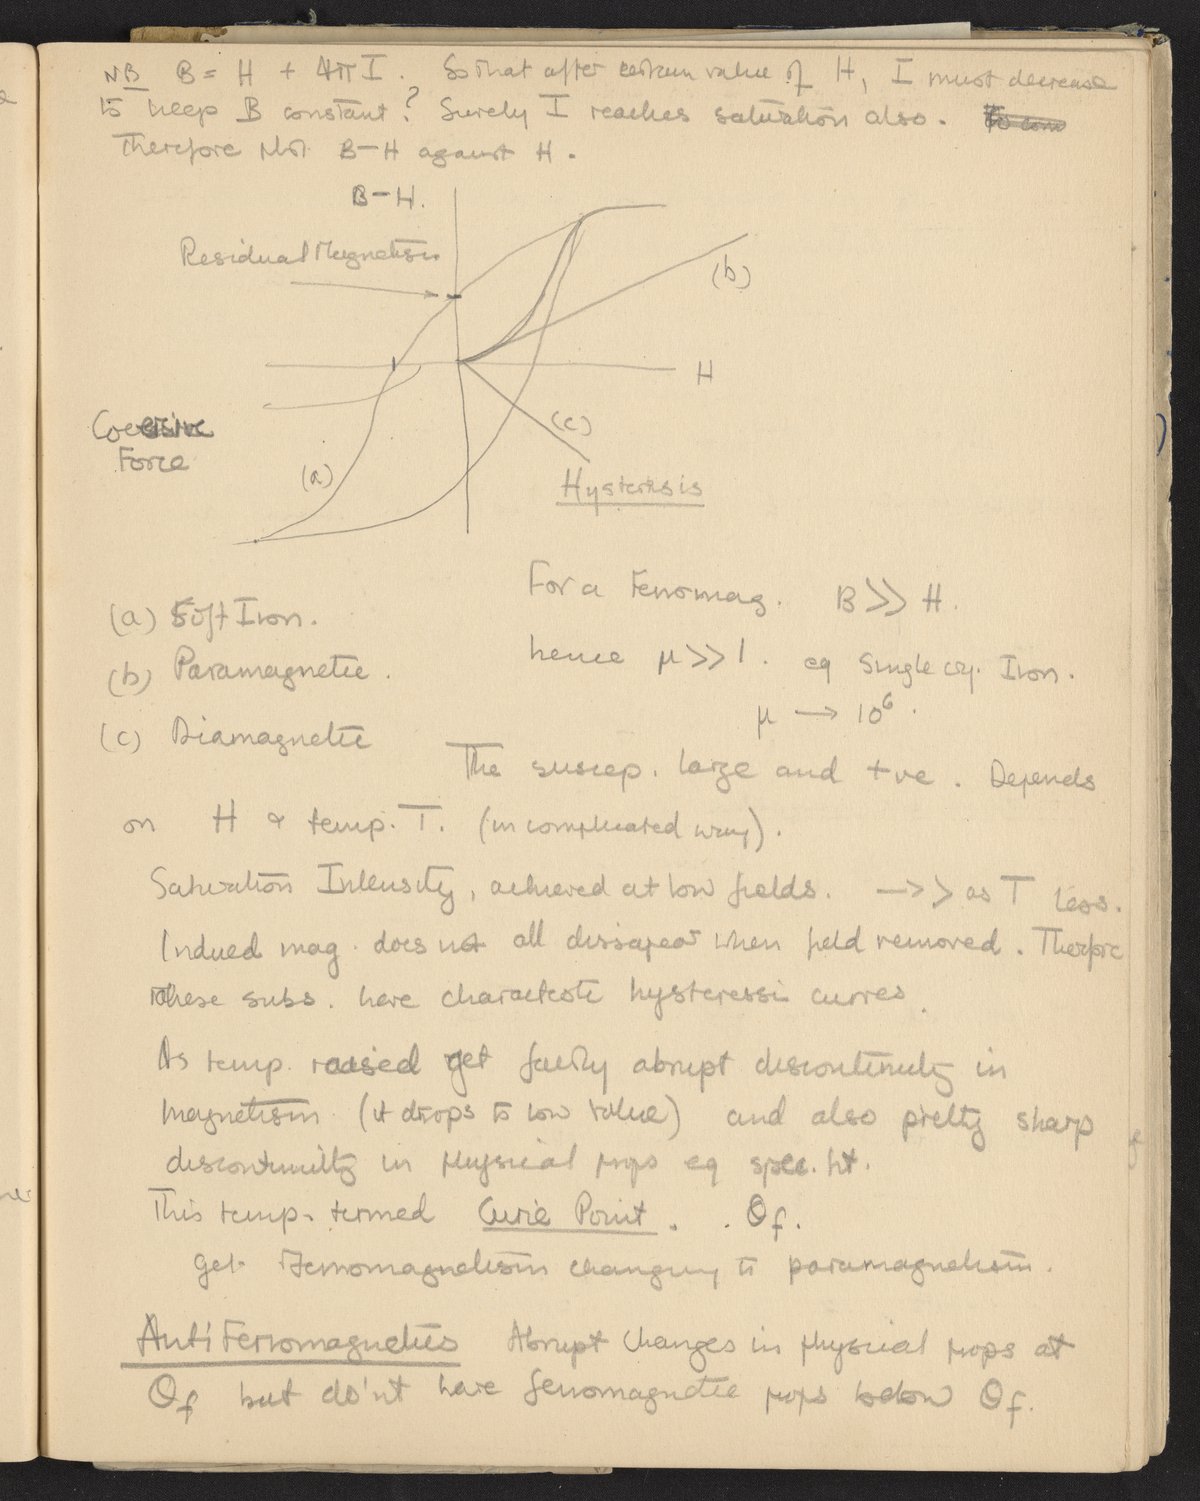 NB B = H + 4πI. So that after certain value of H, I must decrease
to keep B constant? Surely I reaches saturation also. To com
Therefore plot B-H against H.
B-H.
Residual Magnetism
(b)
H
(c)
Coersive
Force
(a)
Hysteresis
For a Ferromag. B >> H.
(a) Soft Iron.
hence μ >> 1. eg Single cry. Iron.
(b) Paramagnetic.
μ → 10⁶.
(c) Diamagnetic
The suscep. large and +ve. Depends
on H & temp. T. (in complicated way).
Saturation Intensity, achieved at low fields. →> as T less.
Indued mag. does not all dissapear when field removed. Therfore
these subs. have characteristic hysteressis curves.
As temp. raised get fairly abrupt discontinuity in
magnetism (it drops to low value) and also pretty sharp
discontinuity in physical props eg spec. ht.
This temp. termed Curie Point. . Θf.
get Ferromagnetism changing to paramagnetism.
AntiFerromagnetics Abrupt changes in physical props at
Θf but do'nt have ferromagnetic props below Θf.